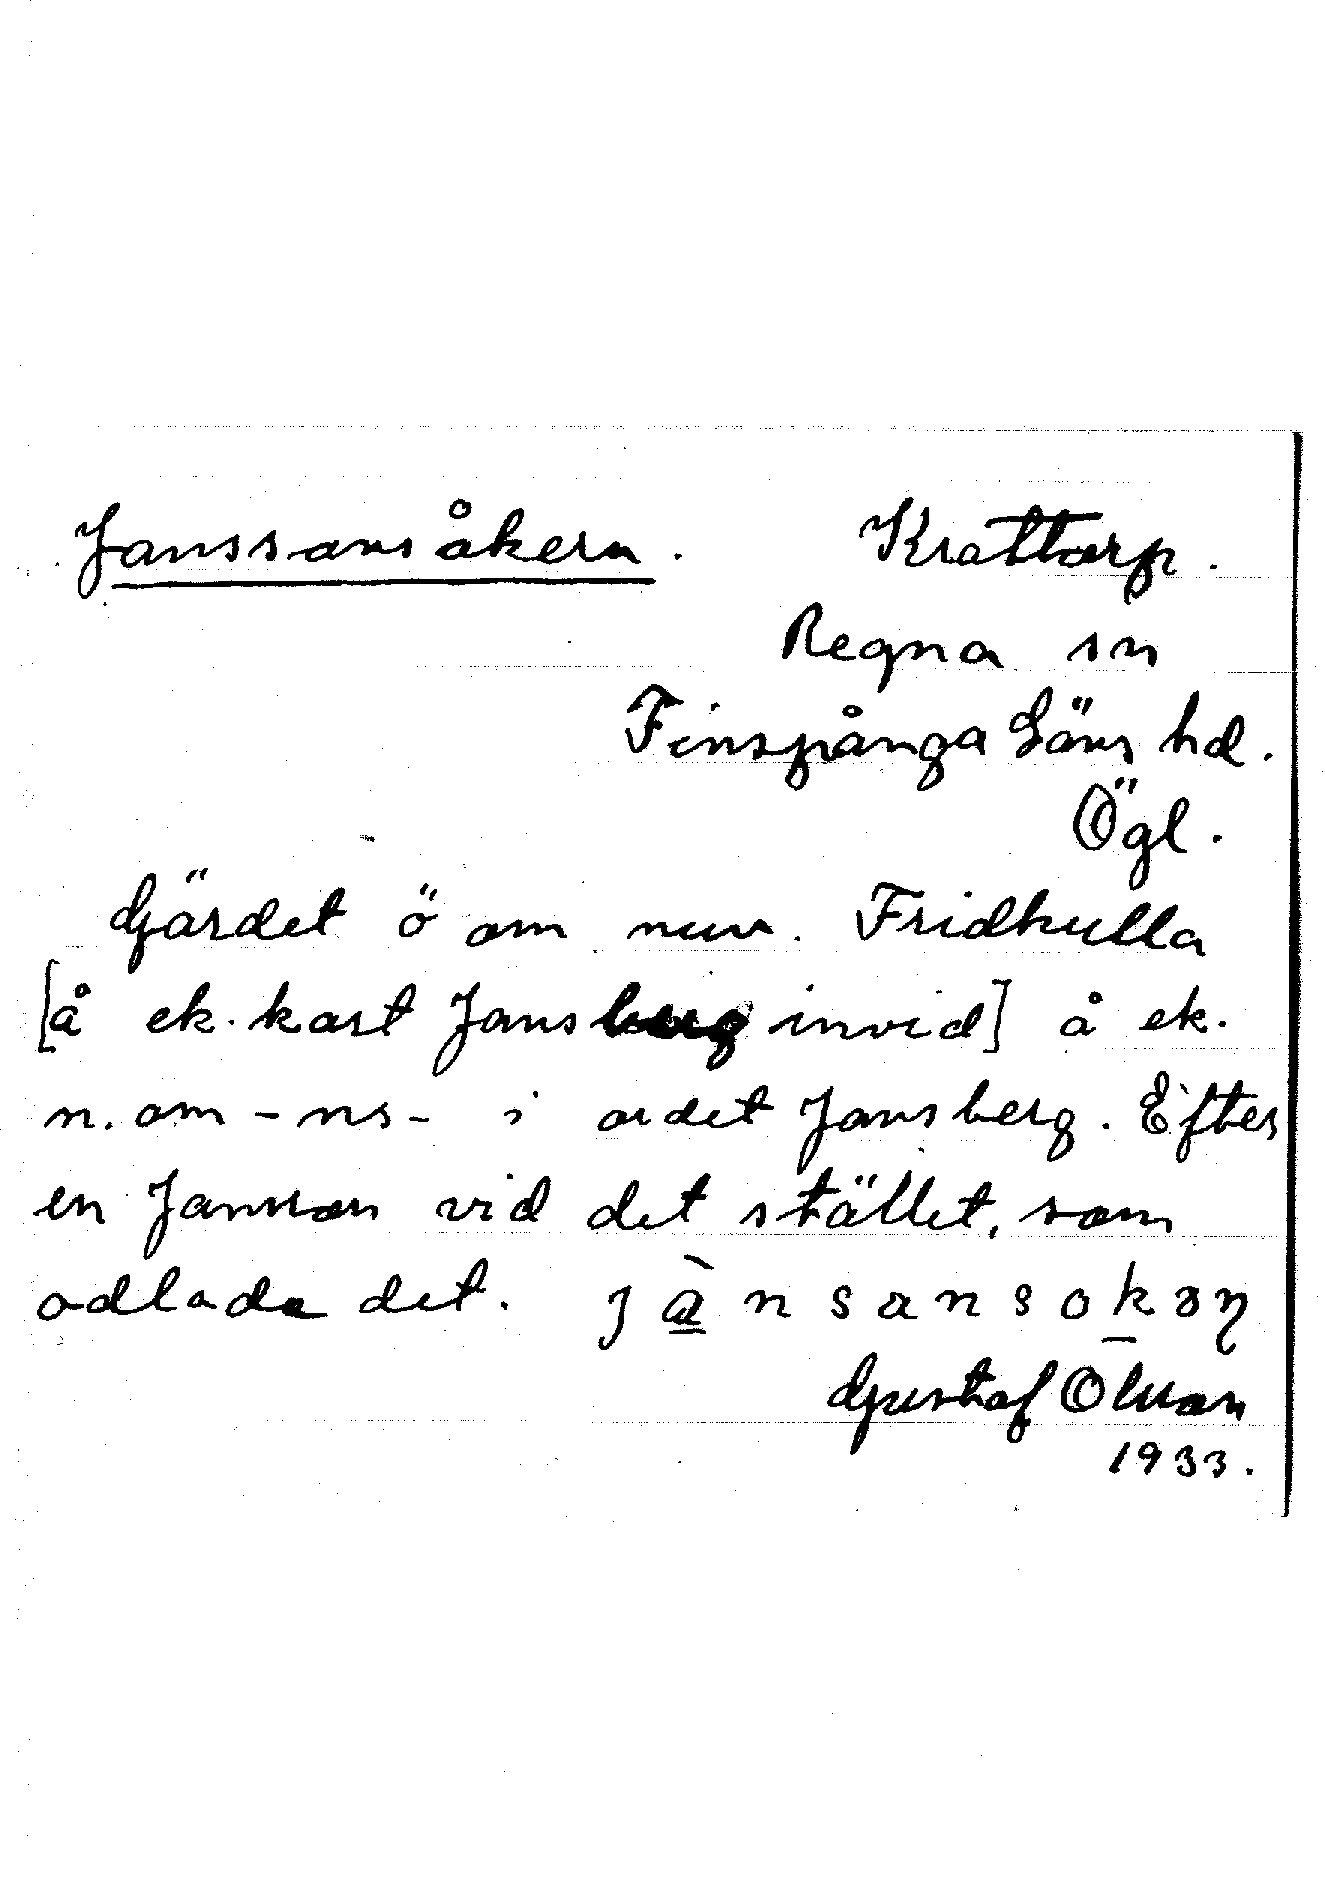 Janssonsåkern. Krattorp.
Regna sn
Finspånga Läns hd.
Ögl.
Gärdet ö om nuv. Fridkulla
[å ek. kart Jansberg invid] å ek.
n. om -ns- i ordet Jansberg. Efter
en Jansson vid det stället, som
odlade det. jànsansokəņ
Gustaf Olsson
1933.